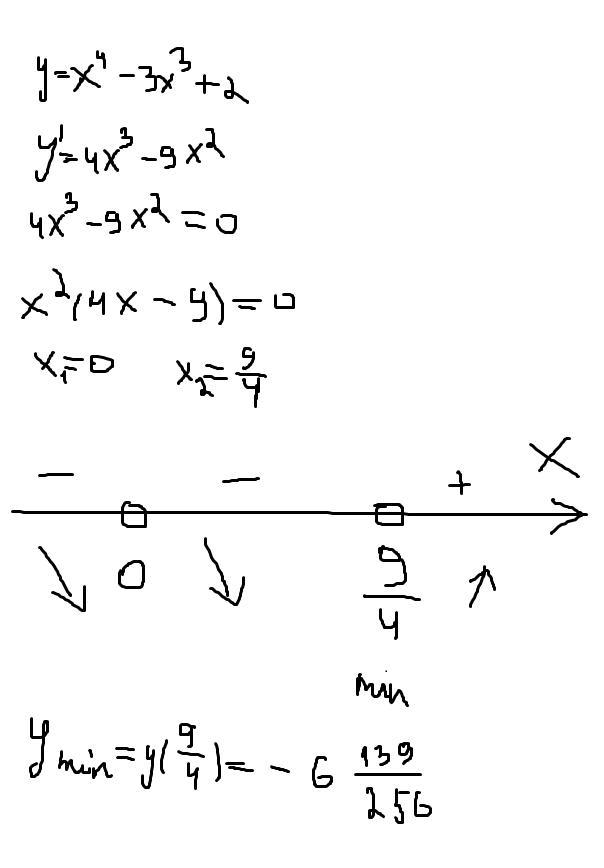 y=x⁴-3x³+2
y'=4x³-9x²
4x³-9x²=0
x²(4x-9)=0
x₁=0 x₂=9/4
- - + x
0 9/4
min
y min=y(9/4)=-6 139/256